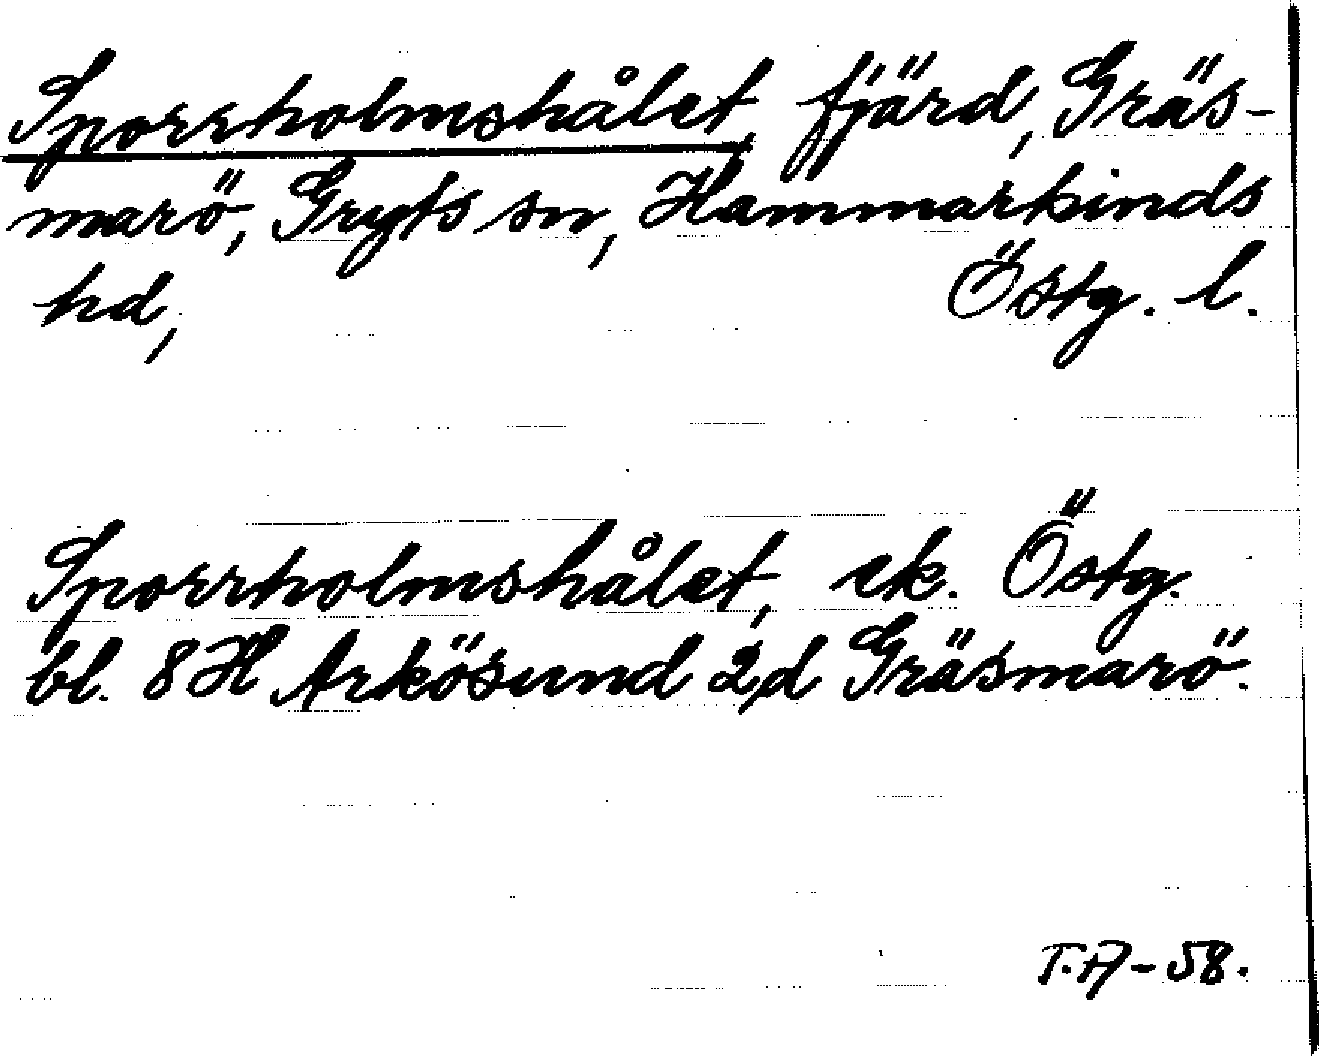 Sporrholmshålet, fjärd, Gräs-
marö, Gryts sn, Hammarkinds
hd, Östg. l.
Sporrholmshålet, ek. Östg.
bl. 8 H Arkösund 2d Gräsmarö.
T.A-58.